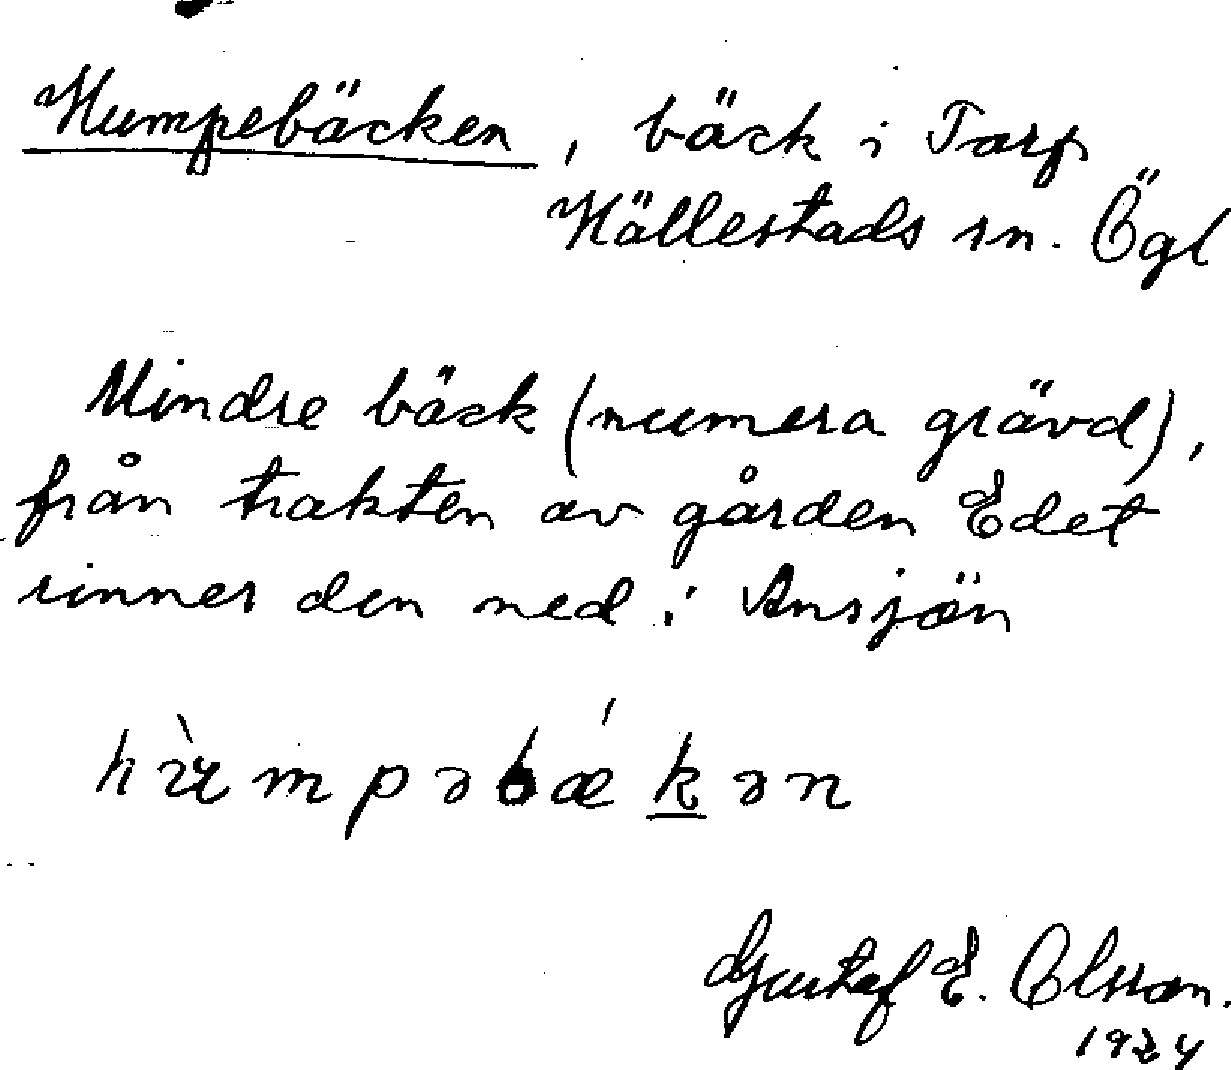 Humpebäcken, bäck i Torp
Hällestads sn. Ögl
Mindre bäck (numera grävd),
från trakten av gården Edet
rinner den ned i Ansjön
Gustaf E. Olsson.
1924